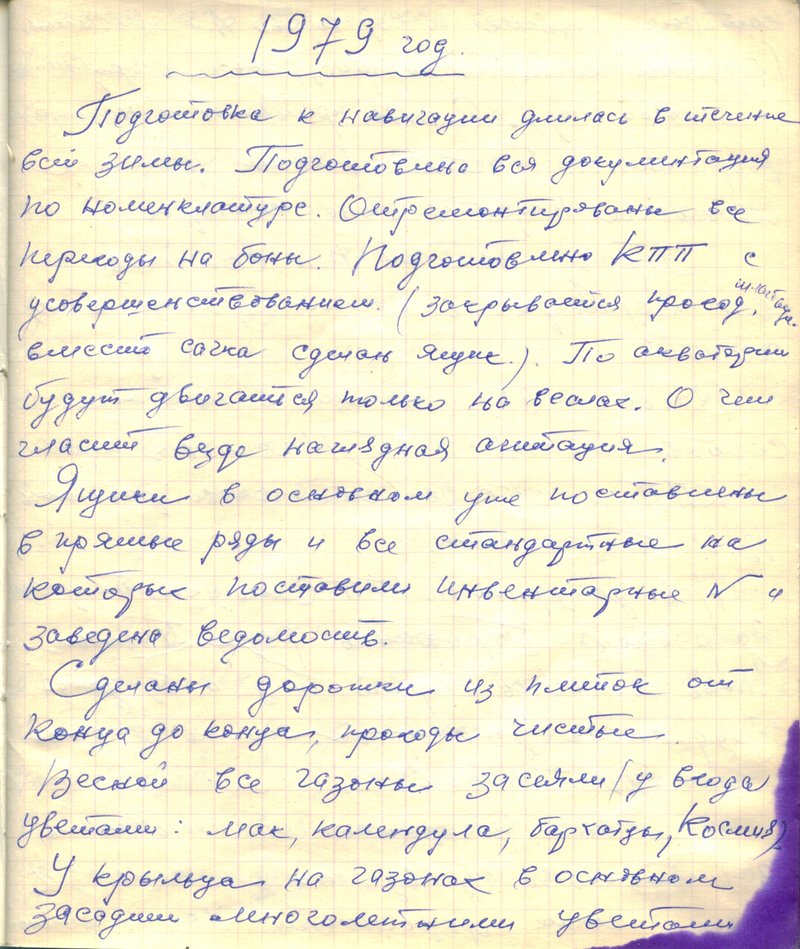 1979 год.
Подготовка к навигации длилась в течение
всей зимы. Подготовлена вся документация
по номенклатуре. Отремонтированы все
переходы на боны. Подготовлено КПП с
усовершенствованием. (закрывается проход,
вместо сачка сделан ящик.). По акватории
будут двигаться только на веслах. О чем
гласит везде наглядная агитация.
Ящики в основном уже поставлены
в прямые ряды и все стандартные на
которых поставили инвентарные N и
заведена ведомость.
Сделаны дорожки из плиток от
конца до конца, проходы чистые
Весной все газоны засеяли (у входа
цветами: мак, календула, бархатцы, Космия)
У крыльца на газонах в основном
засадили многолетними цветами